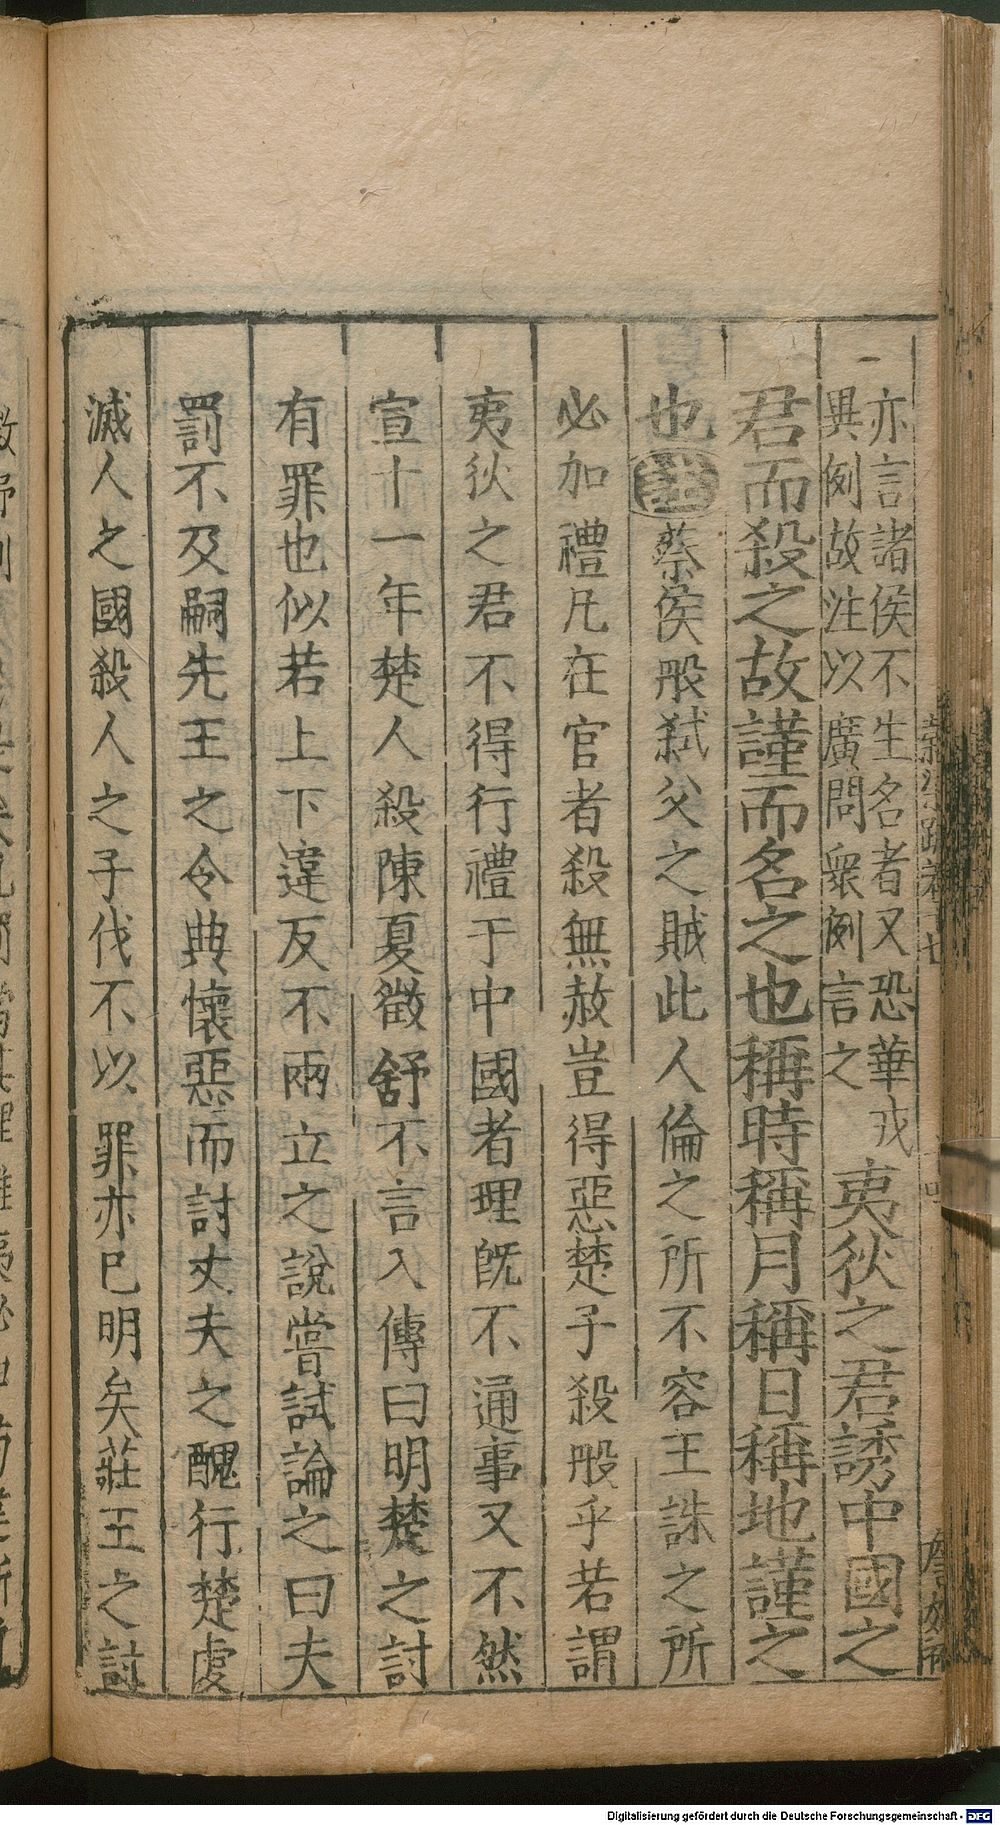 亦言諸侯不生名者又恐華戎
異例故注以廣問衆例言之
夷狄之君誘中國之
君而殺之故謹而名之也稱時稱月稱日稱地謹之
也 蔡侯般弑父之賊此人倫之所不容王誅之所
必加禮凡在官者殺無赦豈得惡楚子殺般乎若謂
夷狄之君不得行禮于中國者理旣不通事又不然
宣十一年楚人殺陳夏徵舒不言入傳曰明楚之討
有罪也似若上下違反不兩立之說嘗試論之曰夫
罰不及嗣先王之令典懷惡而討丈夫之醜行楚虔
滅人之國殺人之子伐不以罪亦巳明矣莊王之討
Digitalisierung gefördert durch die Deutsche Forschungsgemeinschaft - DFG